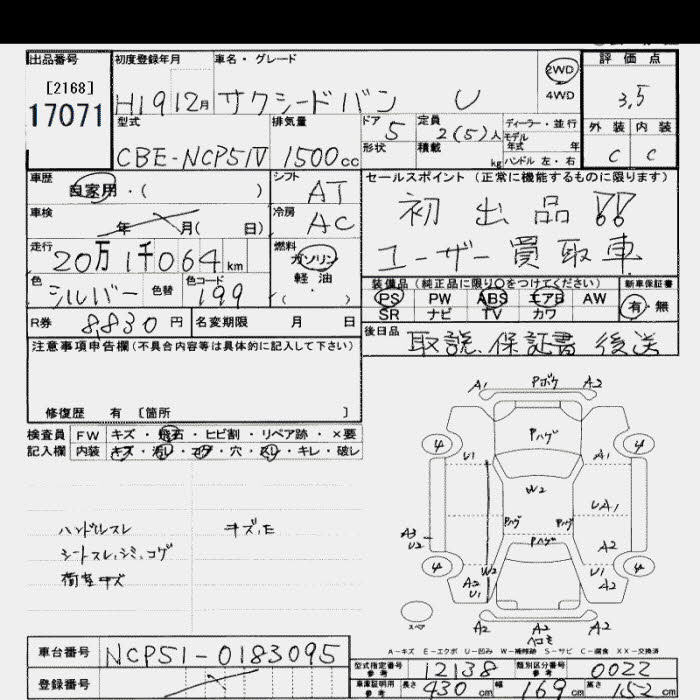 出品番号
[2168]
17071
初度登録年月
H19 12月
車名・グレード
サクシードバン U
2WD
4WD
評価点
3.5
型式
CBE-NCP51V
排気量
1500cc
ドア
5
形状
定員
2(5)人
積載
kg
ディーラー・並行
モデル
年式 年
ハンドル 左・右
外装 内装
C C
車歴
自家用・( )
シフト
AT
車検
年 月( 日)
冷房
AC
走行
20万1千064km
燃料
ガソリン
軽油
( )
色
シルバー
色替
色コード
199
R券
8,830円
名変期限 月 日
セールスポイント(正常に機能するものに限ります)
初出品!!
ユーザー買取車
装備品(純正品に限り○をつけてください)
新車保証書
PS PW ABS エアB AW
有・無
SR ナビ TV カワ
後日品
取説、保証書 後送
注意事項申告欄(不具合内容等は具体的に記入して下さい)
修復歴 有 [箇所 ]
検査員
記入欄
FW キズ・飛石・ヒビ割・リペア跡・×要
内装 キズ・汚レ・コゲ・穴・スレ・キレ・破レ
ハンドルスレ
シートスレ、シミ、コゲ
荷室キズ
A1 Pボケ A2
Pハゲ
4 4
U1 A1
W2
UA1
Pハゲ Pハゲ
Pハゲ
A3
U2
A2
4 4
W2
A2
U1
U1
A2
スペア
A2 A2 A2
ヘコミ
A-キズ E-エクボ U-凹み W-補修跡 S-サビ C-腐食 XX-交換済
車台番号
NCP51-0183095
登録番号
型式指定番号
参考
12138
類別区分番号
参考
0022
車庫証明用
参考
長さ 430cm 幅 169cm 高さ 152cm